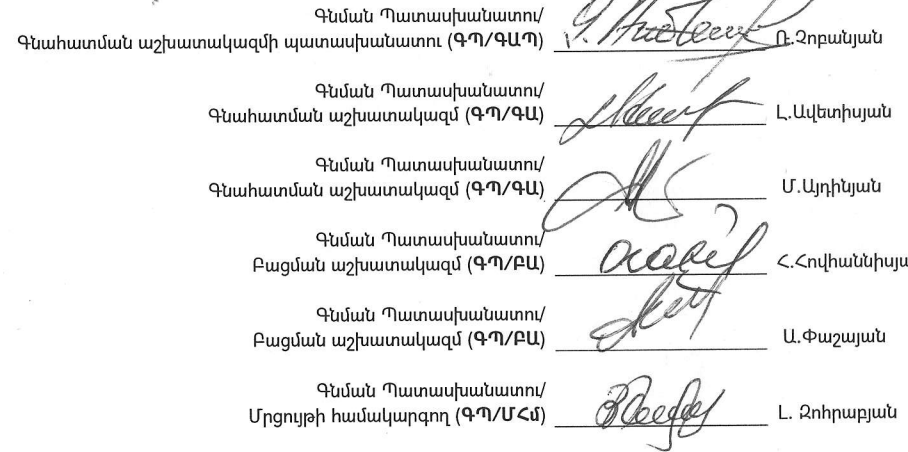 Գնման Պատասխանատու/
Գնահատման աշխատակազմի պատասխանատու (ԳՊ/ԳԱՊ) Ռ.Չոբանյան
Գնման Պատասխանատու/
Գնահատման աշխատակազմ (ԳՊ/ԳԱ) Լ.Ավետիսյան
Գնման Պատասխանատու/
Գնահատման աշխատակազմ (ԳՊ/ԳԱ) Մ.Այդինյան
Գնման Պատասխանատու/
Բացման աշխատակազմ (ԳՊ/ԲԱ) Հ.Հովհաննիսյա
Գնման Պատասխանատու/
Բացման աշխատակազմ (ԳՊ/ԲԱ) Ա.Փաշայան
Գնման Պատասխանատու/
Մրցույթի համակարգող (ԳՊ/ՄՀմ) Լ. Զոհրաբյան